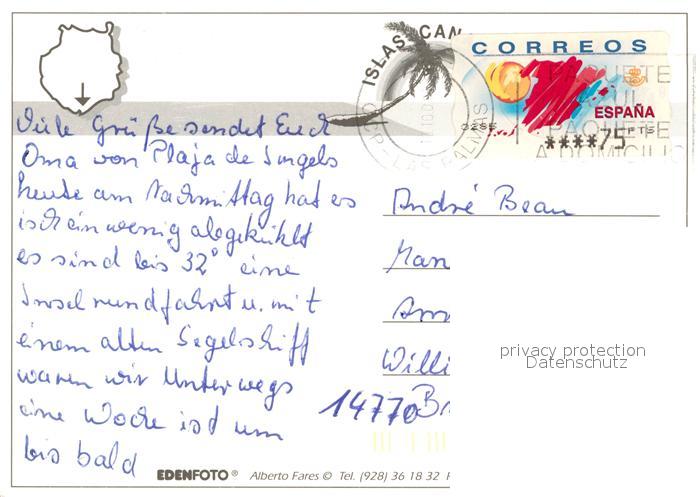 ISLAS CAN
CORREOS
PAQUETE
AQUI
ESPAÑA
2255
****75 PTS
PAQUETE
CCP-LAS PALMAS
A DOMICILIO
Viele Grüße sendet Euch
Oma von Plaja de Ingels
heute am Nachmittag hat es
isch ein wenig abgekühlt
es sind bis 32° eine
Inselrundfahrt u. mit
einem alten Segelschiff
waren wir Unterwegs
eine Woche ist um
bis bald
André Beau
Man
Am
Willi
14770 Br
privacy protection
Datenschutz
EDENFOTO® Alberto Fares © Tel. (928) 36 18 32